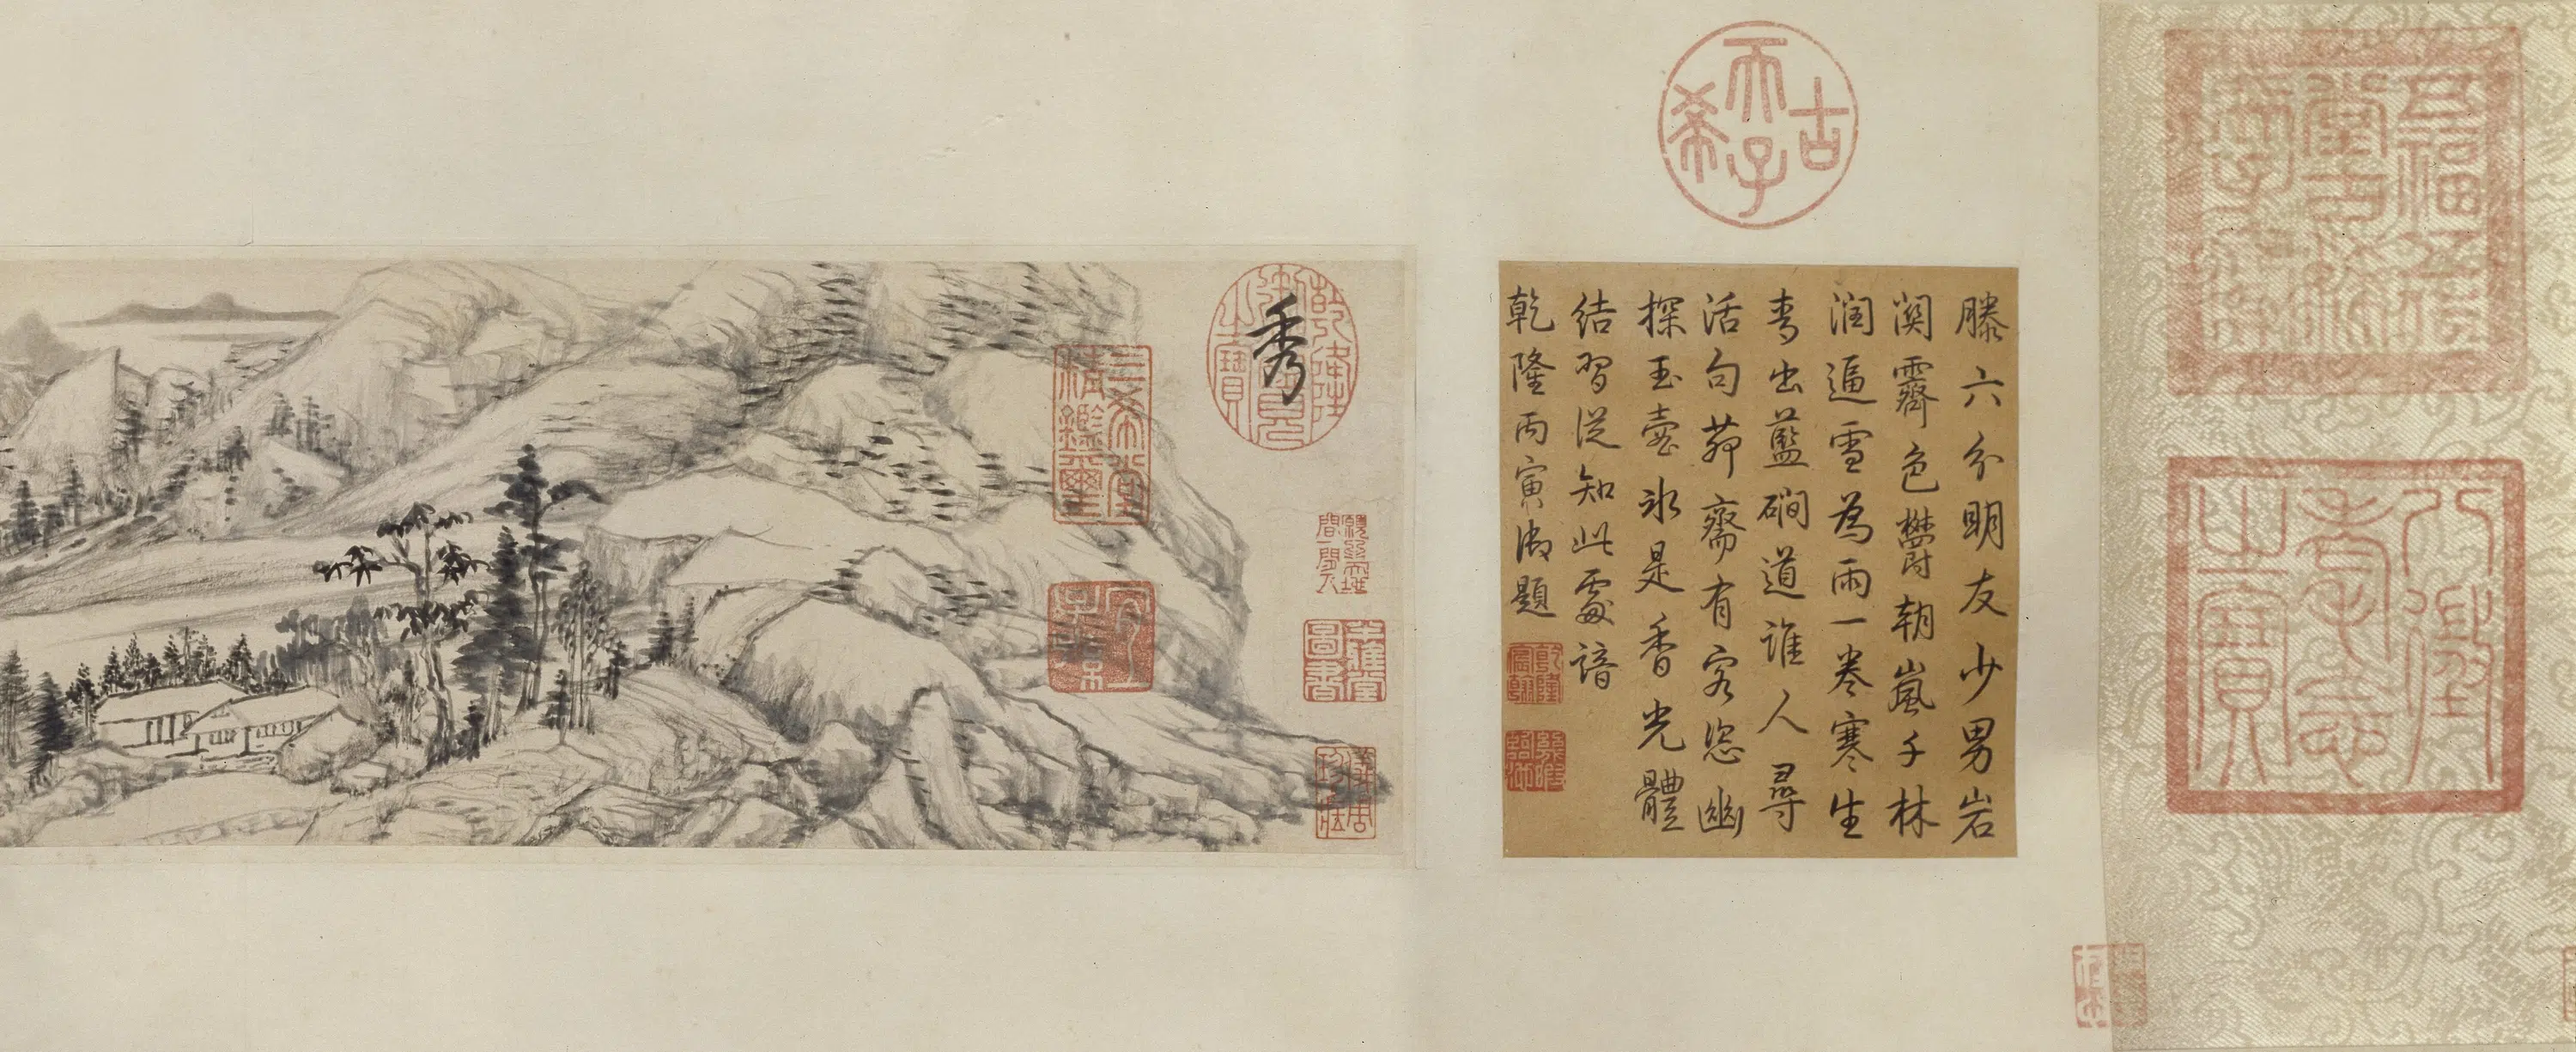 五福五代
堂古稀
天子寶
八徵
耄念
之寶
古希天子
滕六分明友少男岩
關霽色欝朝嵐千林
潤逼雪為雨一卷寒生
青出藍磵道誰人尋
活句茆齋有客恣幽
探玉壺冰是香光體
結習從知此處諳
乾隆丙寅御題
乾隆
宸翰
幾暇
臨池
秀
乾隆
御覽
之寶
三希堂
精鑑璽
宜子孫